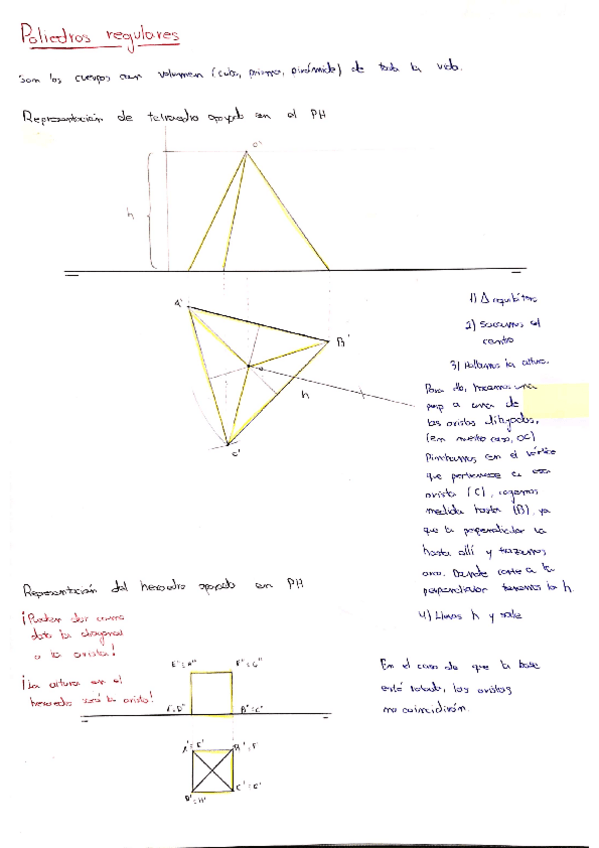 Poliedros regulares
Son los cuerpos con volumen (cubo, prisma, pirámide) de toda la vida.
Representación de tetraedro apoyado en el PH
O''
h
A'
B'
h
C'
1) Δ equilátero
2) Sacamos el
centro
3) Hallamos la altura.
Para ello, trazamos una
perp a una de
las aristas dibujadas,
(en nuestro caso, OC)
Pinchamos en el vértice
que pertenece a esa
arista (C), cogemos
medida hasta (B), ya
que la perpendicular va
hasta allí y trazamos
arco. Donde corte a la
perpendicular tenemos la h.
4) Llevas h y sale
Representación del hexaedro apoyado en PH
¡Pueden dar como
dato la diagonal
o la arista!
¡La altura en el
hexaedro será la arista!
E''≡H''
F''≡G''
B''≡C''
En el caso de que la base
esté rotada, las aristas
no coincidirán.
A'≡E'
B'≡F'
C'≡G'
D'≡H'